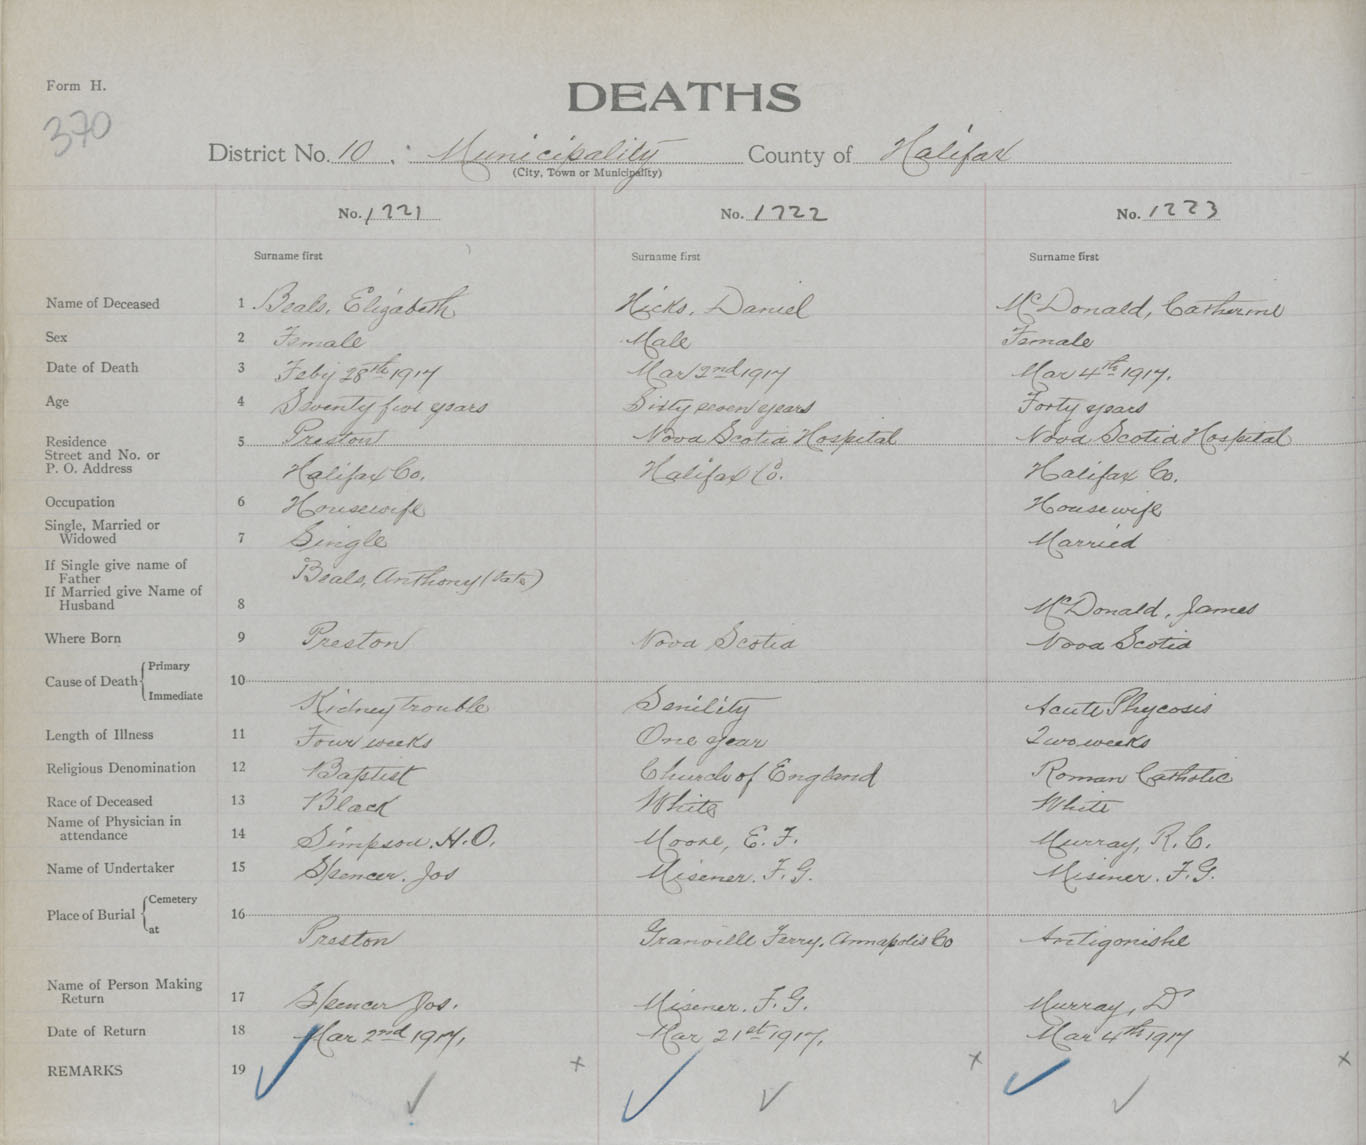 Form H.
DEATHS
370
District No. 10 . Municipality County of Halifax
(City, Town or Municipality)
No. 1221 No. 1222 No. 1223
Surname first Surname first Surname first
Name of Deceased 1 Beals, Elizabeth Hicks, Daniel McDonald, Catherine
Sex 2 Female Male Female
Date of Death 3 Feby 28th 1917 Mar 2nd 1917 Mar 4th 1917.
Age 4 Seventy five years Sixty seven years Forty years
Residence 5 Preston Nova Scotia Hospital Nova Scotia Hospital
Street and No. or
P. O. Address Halifax Co. Halifax Co. Halifax Co.
Occupation 6 Housewife Housewife
Single, Married or
Widowed 7 Single Married
If Single give name of
Father Beals, Anthony (late)
If Married give Name of
Husband 8 McDonald, James
Where Born 9 Preston Nova Scotia Nova Scotia
Cause of Death Primary 10
Immediate Kidney trouble Senility Acute Phycosis
Length of Illness 11 Four weeks One year Two weeks
Religious Denomination 12 Baptist Church of England Roman Catholic
Race of Deceased 13 Black White White
Name of Physician in
attendance 14 Simpson. H. O. Moore, E. F. Murray, R. C.
Name of Undertaker 15 Spencer. Jos Misener. F. G. Misener. F. G.
Place of Burial Cemetery 16
at Preston Granville Ferry, Annapolis Co Antigonishe
Name of Person Making
Return 17 Spencer Jos. Misener. F. G. Murray, Dr
Date of Return 18 Mar 2nd 1917. Mar 21st 1917. Mar 4th 1917
REMARKS 19 x x x